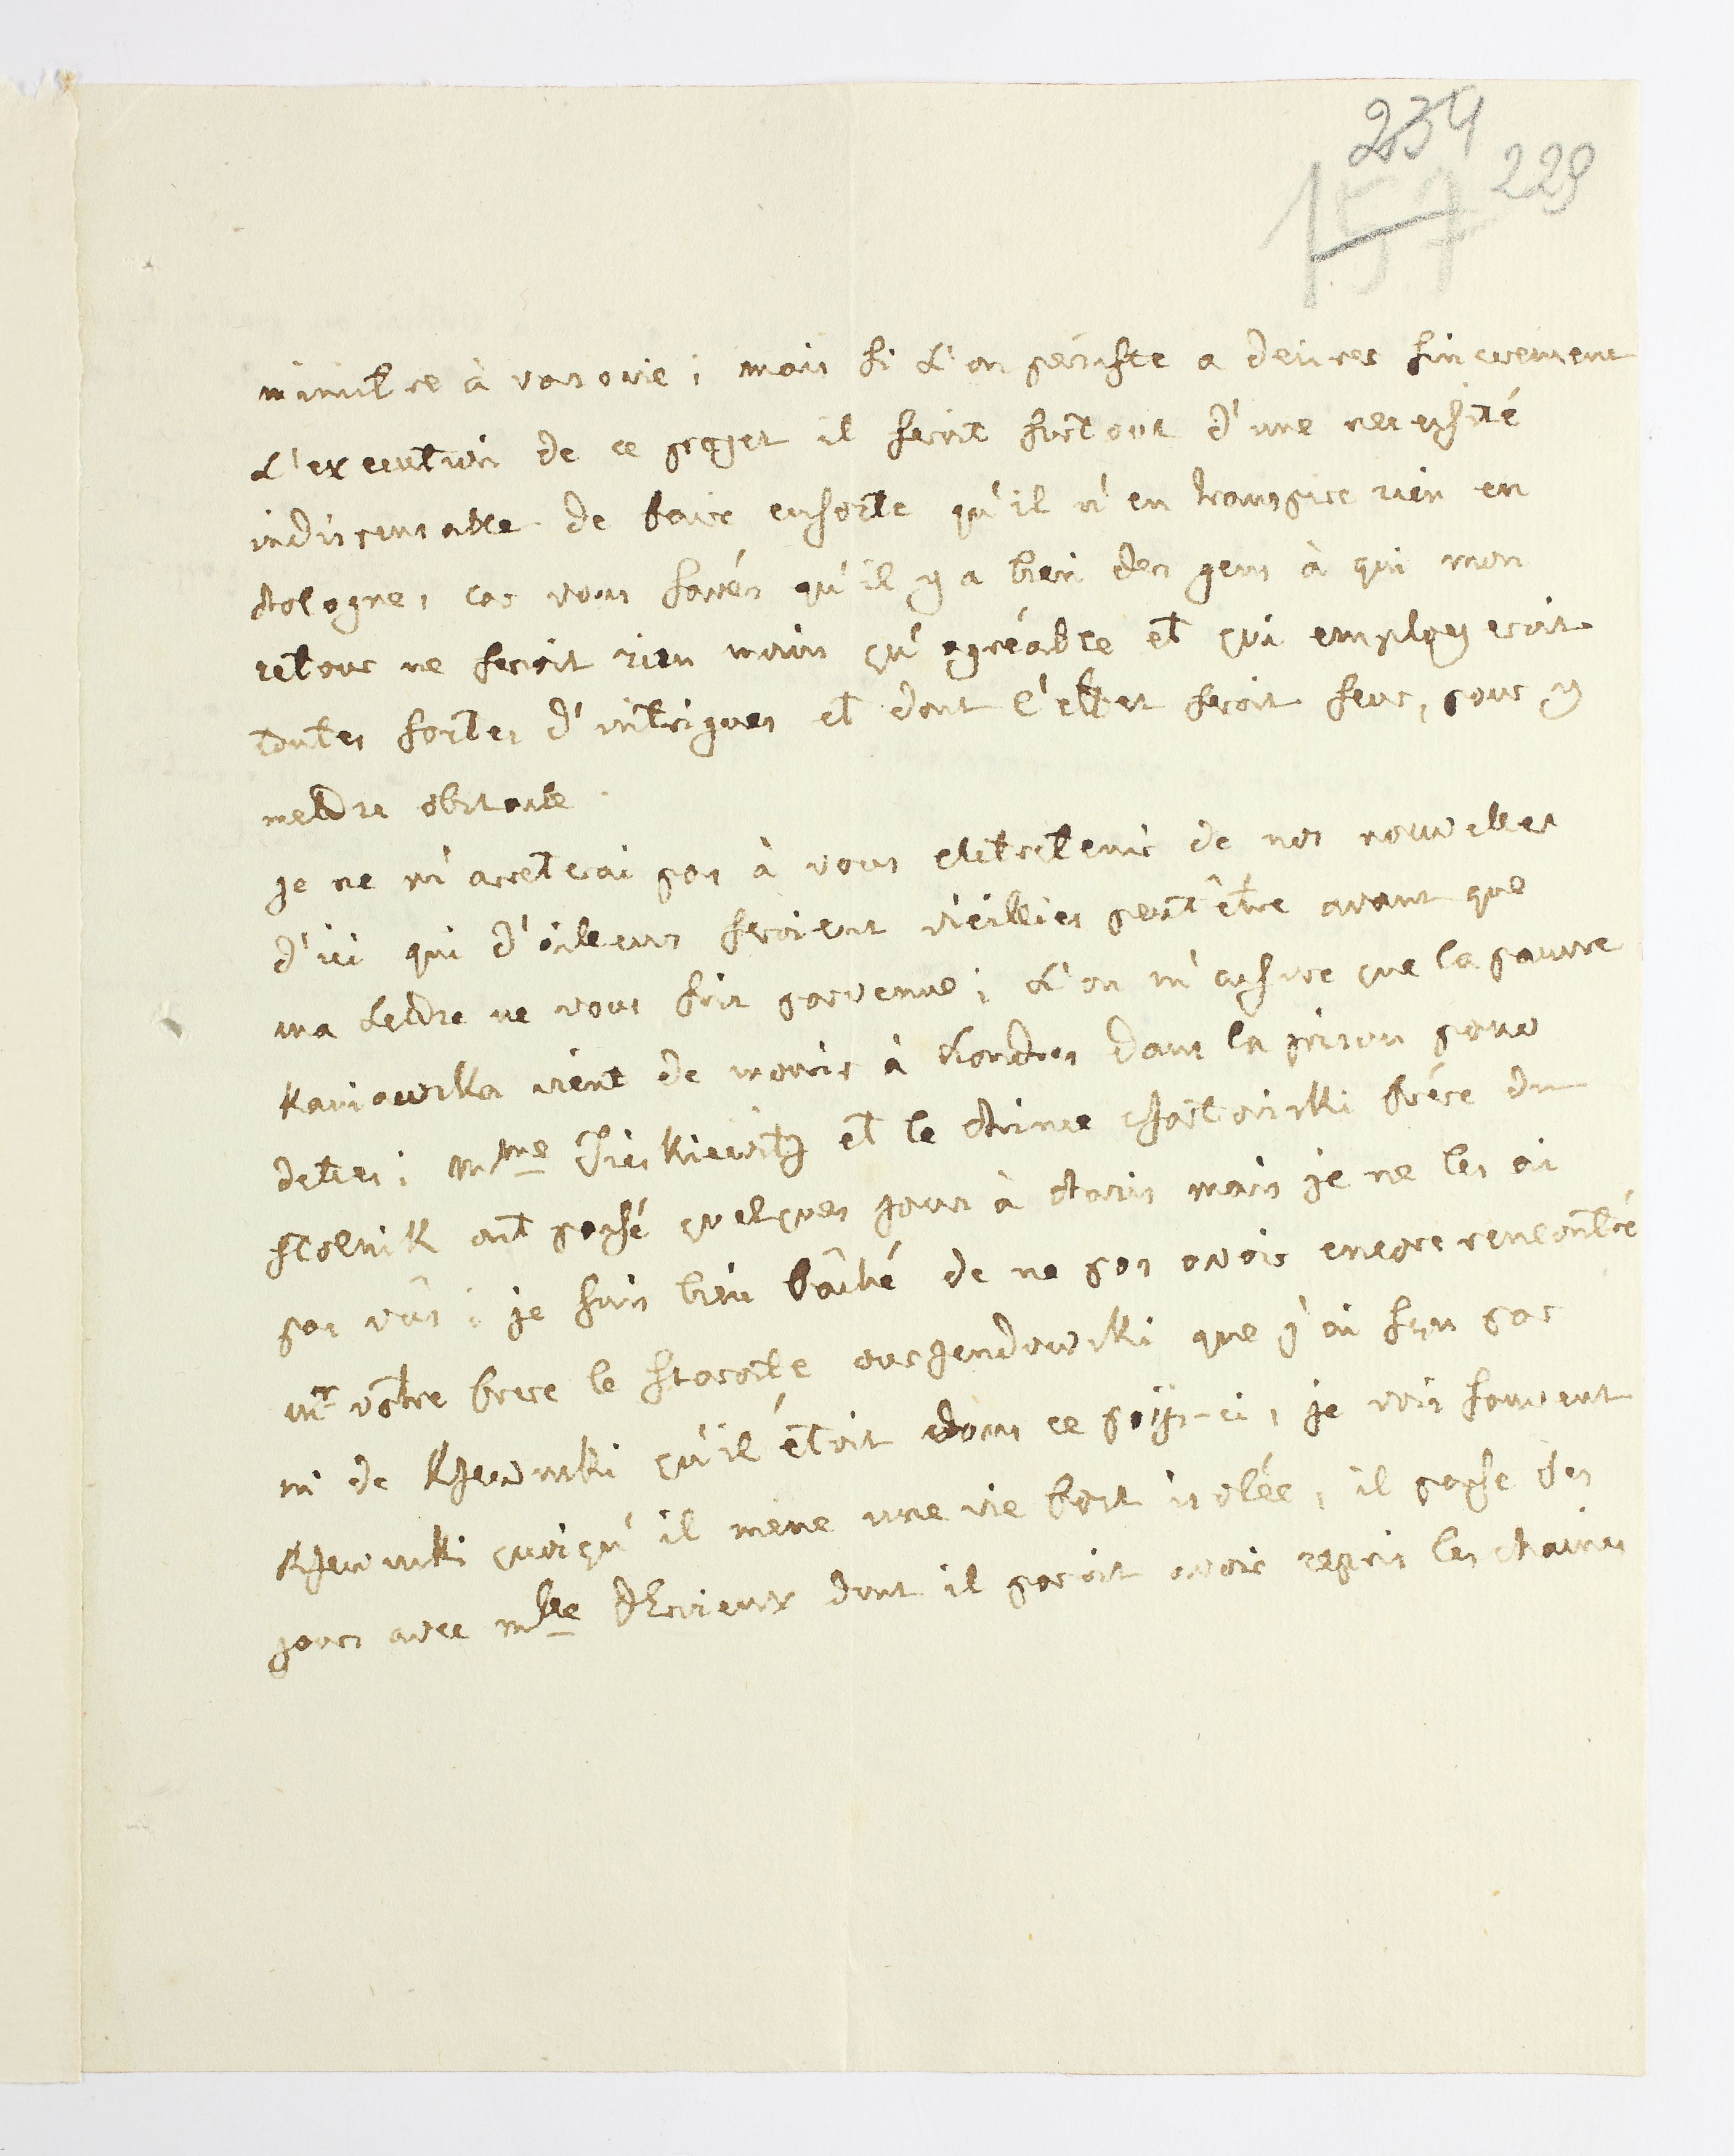 234
229
157
ministre à varsovie ; mais si l'on persiste a desirer sincerement
L'execution de ce projet il seroit surtout d'une necessité
indispensable de faire ensorte qu'il n'en transpire rien en
Pologne, car vous savés qu'il y a bien des gens à qui mon
retour ne seroit rien moins qu'agréable et qui employeroit
toutes sortes d'intrigues et dont l'effet seroit seur, pour y
mettre obstacle.
je ne m'arreterai pas à vous entretenir de nos nouvelles
d'ici qui d'ailleurs seroient vieillies peut être avant que
ma Lettre ne vous soit parvenue ; L'on m'assure que la pauvre
Kaniowska vient de mourir à Londres dans la prison pour
dettes ; Mme Tieskiewitz et le Prince Czartoriski frère du
stolnik ont passé quelques jours à Paris mais je ne les ai
pas vûs ; je suis bien fâché de ne pas avoir encore rencontré
Mr vôtre frere le staroste ourzendowski que j'ai sçu par
Mr de Rzewuski qu'il étoit dans ce païs-ci, je vois souvent
Rzewuski quoiqu'il mene une vie fort isolée, il passe des
jours avec Mlle d'Ervieux dont il paroit avoir repris les chaines